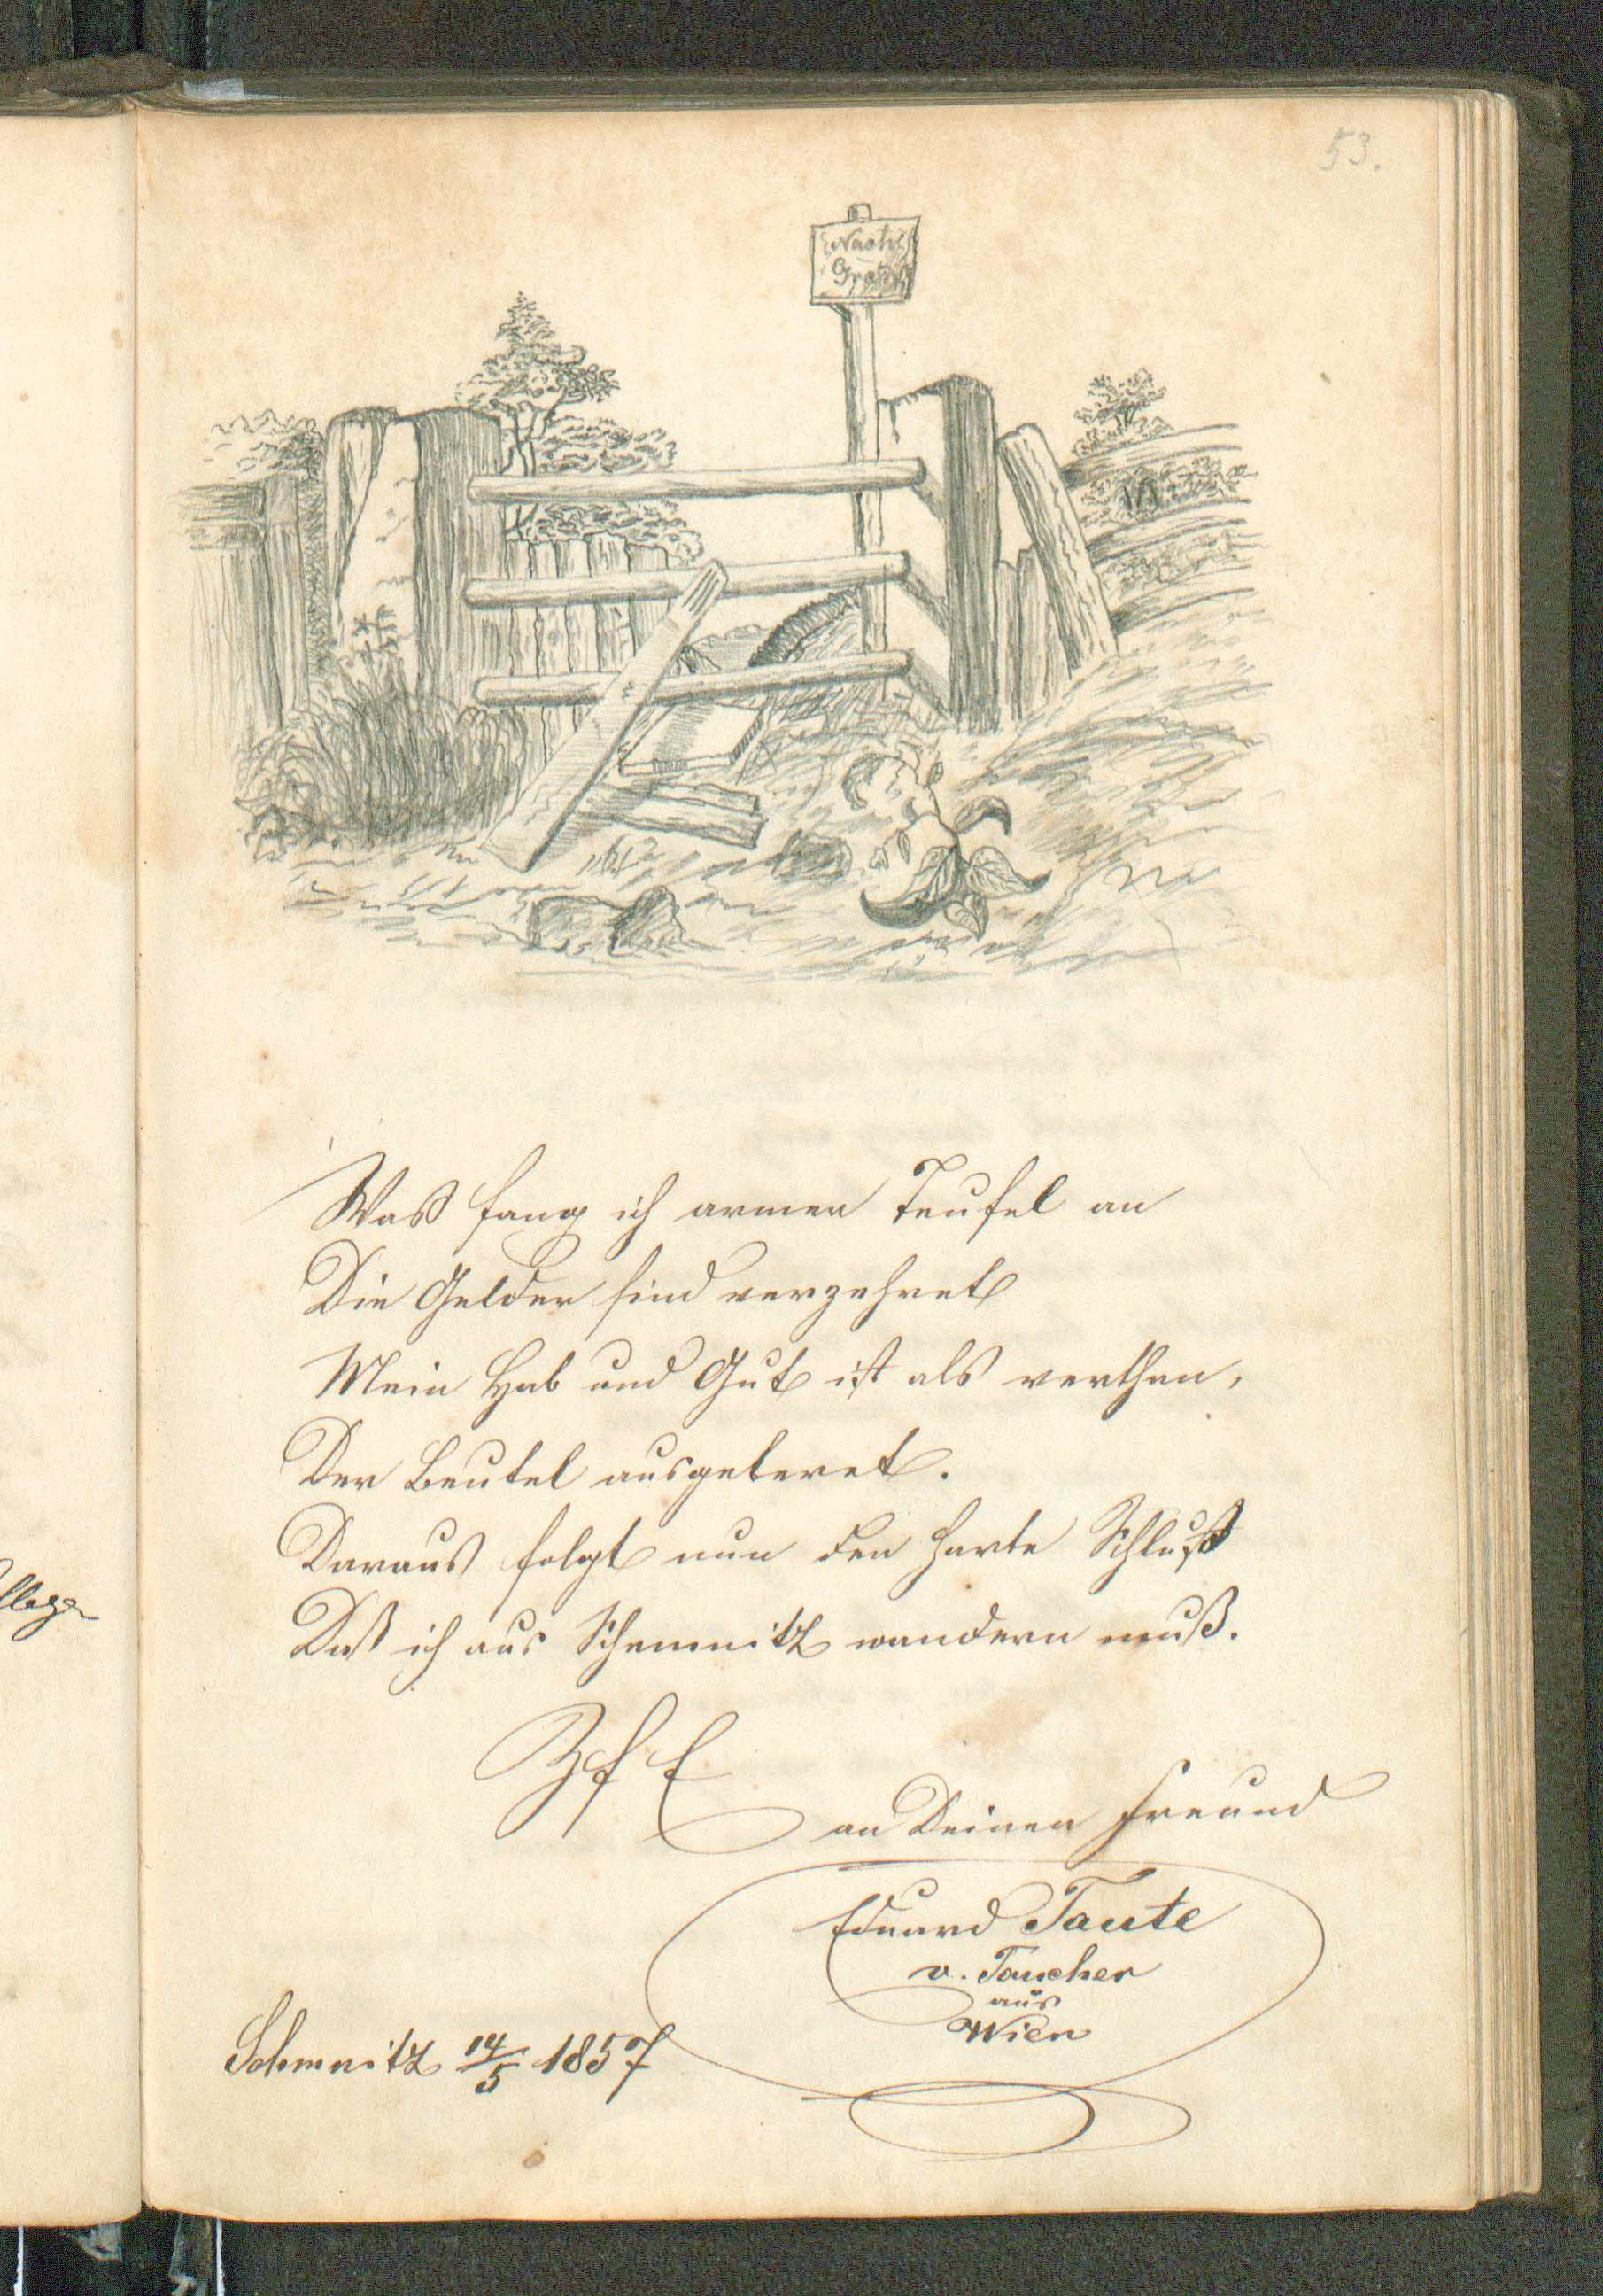 53.
Nach
Gratz
Was fang ich armer Teufel an
Die Gelder sind verzehret
Mein Hab und Gut ist als verthan,
Der Beutel ausgeleret.
Daraus folgt nun der harte Schluß
Daß ich aus Schemnitz wandern muß.
Z f E
an Deinen Freund
Eduard Taute
v. Taucher
aus
Wien
Schemnitz 14/5 1857